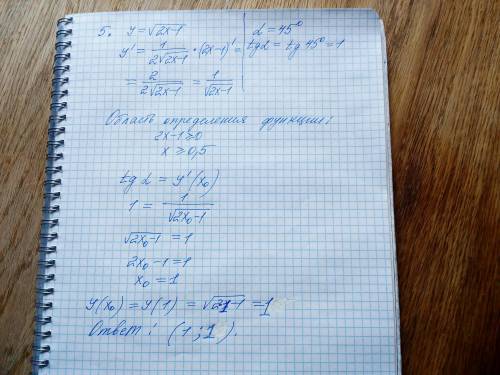 5. y = √2x-1 | α = 45°
y' = 1/2√2x-1 · (2x-1)' = | tg α = tg 45° = 1
= 2/2√2x-1 = 1/√2x-1
Область определения функции:
2x-1 ≥ 0
x ≥ 0,5
tg α = y'(x₀)
1 = 1/√2x₀-1
√2x₀-1 = 1
2x₀-1 = 1
x₀ = 1
y(x₀) = y(1) = √2·1-1 = 1
Ответ: (1; 1).